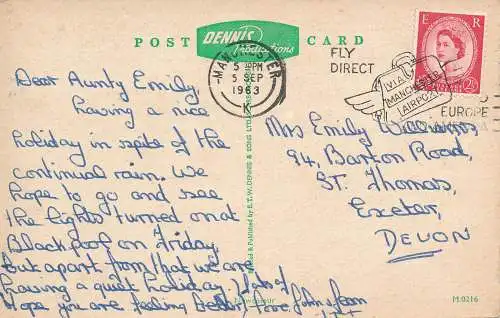 POST CARD
DENNIS
Productions
MANCHESTER
5 30PM
5 SEP
1963
K
FLY
DIRECT
VIA
MANCHESTER
AIRPORT
EUROPE
E R
2½
Dear Aunty Emily
having a nice
holiday in spite of the
continual rain. We
hope to go and see
the lights turned on at
Blackpool on Friday,
but apart from that we are
having a quiet holiday
Hope you are feeling better, love John & Jean
Mrs Emily Williams
94, Barton Road,
St. Thomas,
Exeter,
DEVON
& Published by E. T. W. DENNIS & SONS LTD.
M.0216